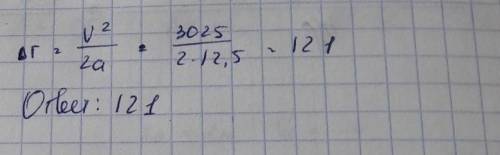 Δr = V² / 2a = 3025 / 2·12,5 = 121
Ответ: 121